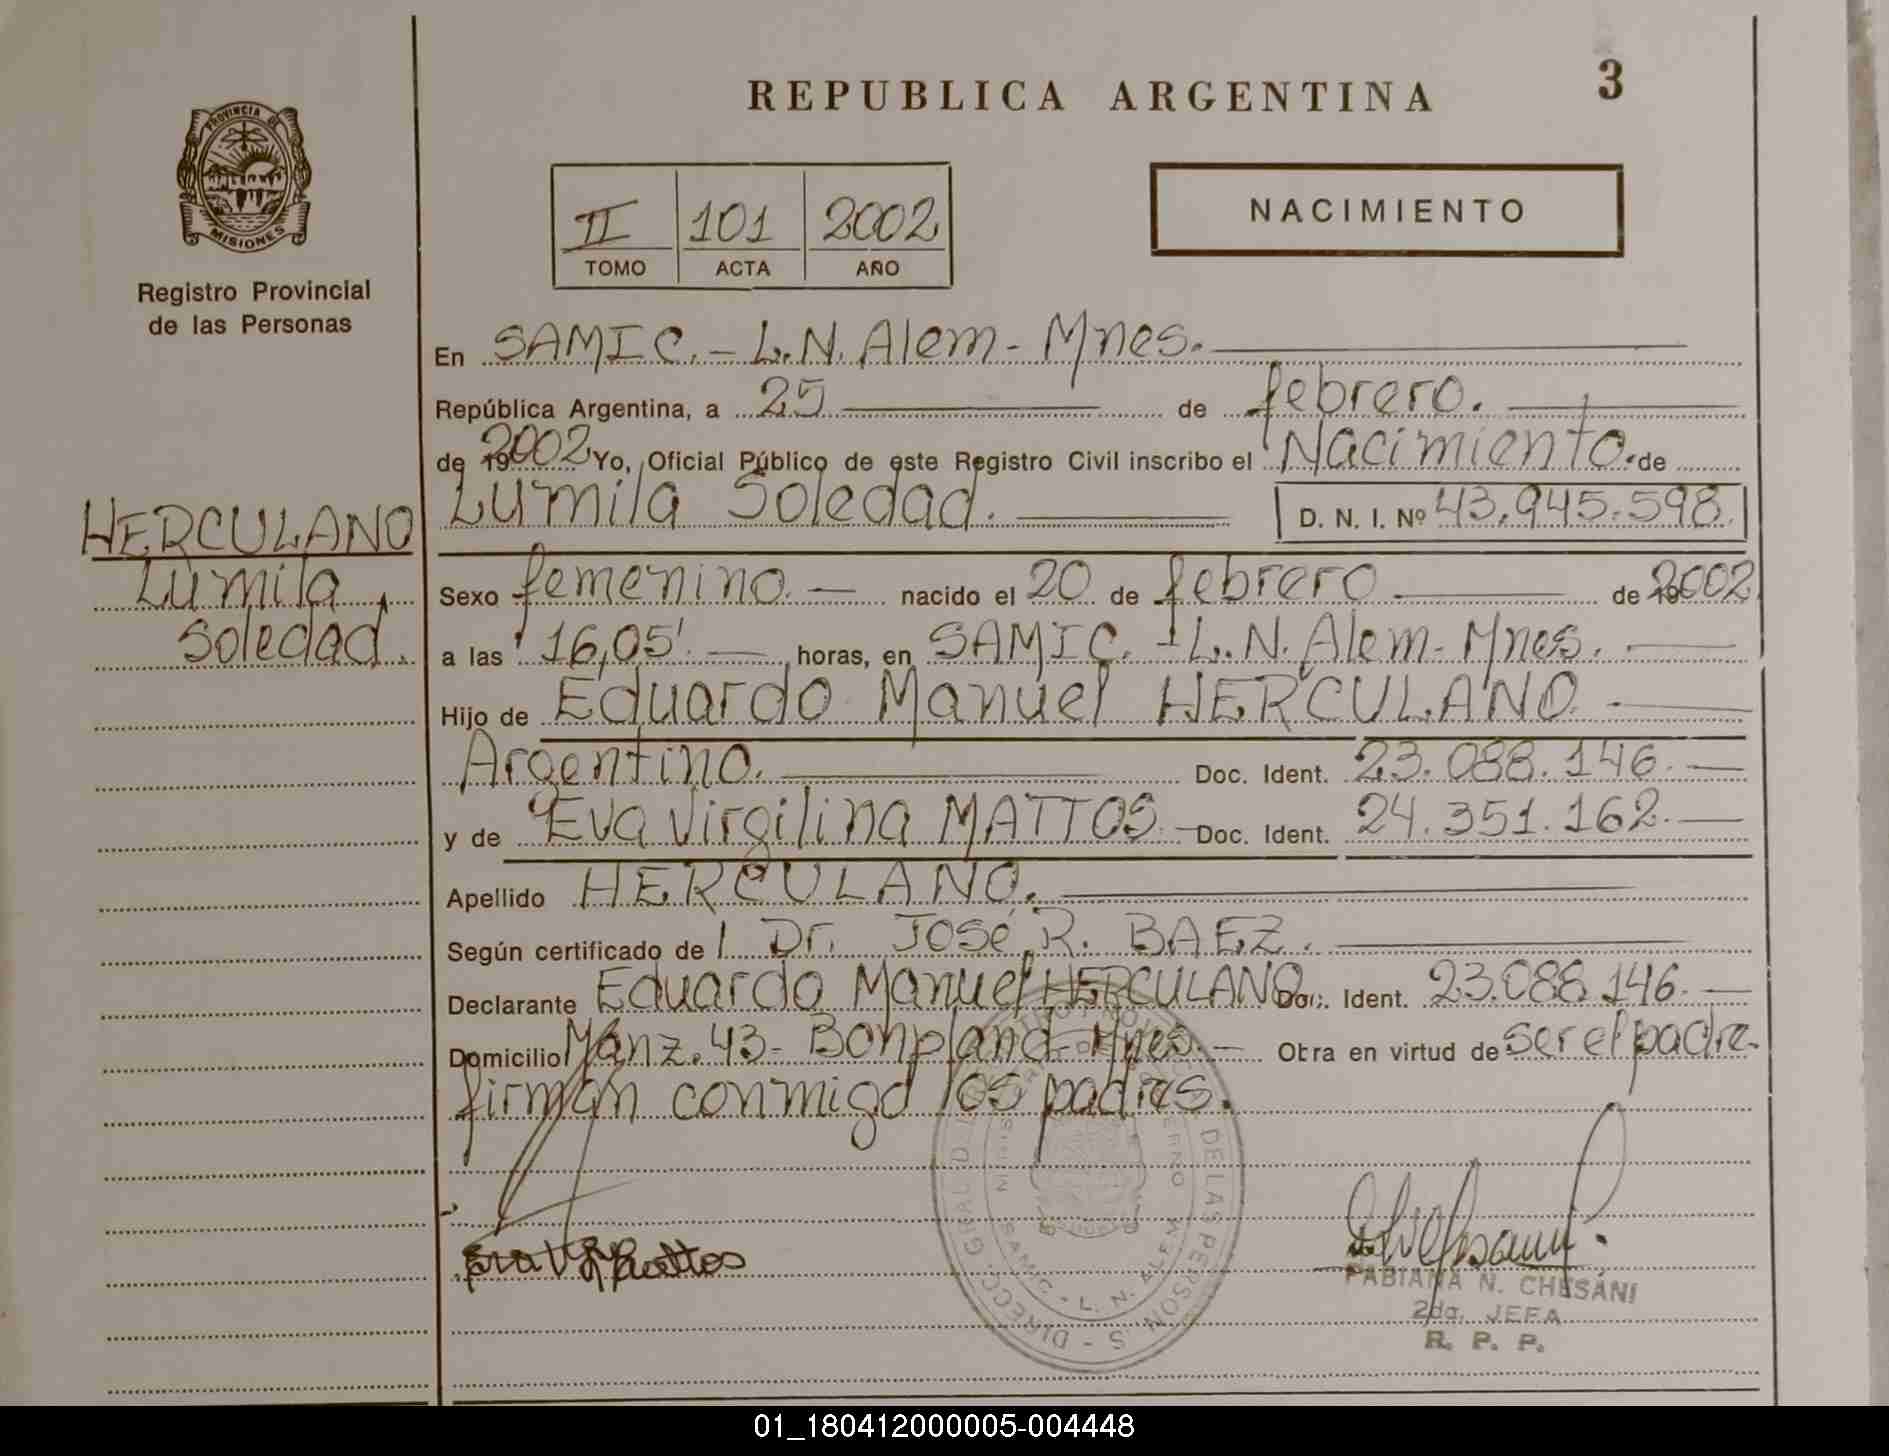 REPUBLICA ARGENTINA
3
PROVINCIA DE
MISIONES
Registro Provincial
de las Personas
II 101 2002
TOMO ACTA AÑO
NACIMIENTO
En SAMIC. - L.N. Alem - Mnes.
República Argentina, a 25 de febrero.
de 2002 Yo, Oficial Público de este Registro Civil inscribo el Nacimiento. de
Lumila Soledad. D. N. I. Nº 43.945.598.
HERCULANO
Lumila
Soledad.
Sexo femenino. nacido el 20 de febrero de 2002
a las 16,05'. horas, en SAMIC. - L.N. Alem - Mnes.
Hijo de Eduardo Manuel HERCULANO.
Argentino. Doc. Ident. 23.088.146.
y de Eva Virgilina MATTOS. Doc. Ident. 24.351.162.
Apellido HERCULANO.
Según certificado de Dr. José R. BAEZ.
Declarante Eduardo Manuel HERCULANO Doc. Ident. 23.088.146.
Domicilio Manz. 43 - Bonpland - Mnes. - Obra en virtud de ser el padre.
firman conmigo los padres.
DE LAS PERSON S - DIRECC. GRAL D
SAMIC - L. N. ALEM
FABIANA N. CHESANI
2da. JEFA
R. P. P.
01_180412000005-004448